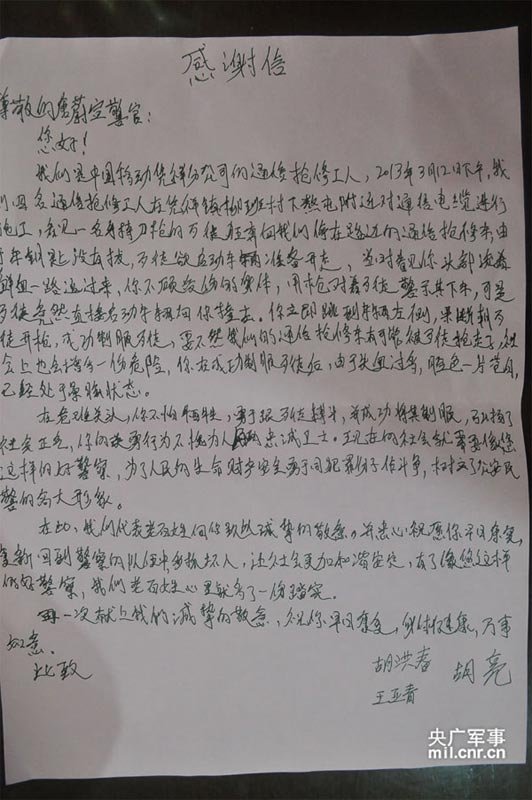 感谢信
尊敬的唐蔚空警官：
您好！
我们是中国移动凭祥分公司的通信抢修工人，2013年3月12日下午，我
们四名通信抢修工人在凭祥镇 班村下 屯附近对通信电缆进行
施工，看见一名身 刀枪的歹徒 奔向我们停在路边的通信抢修车，由
于车钥匙没有拔，歹徒欲启动车辆准备开走，当时看见你头部流着
鲜血一路追过来，你不顾 的 ，用枪对着歹徒 示其下车，可是
歹徒竟然直接启动车辆向你撞去。你立即跳到车辆左侧，果断朝歹
徒开枪，成功制服歹徒，要不然我们的通信抢修车有可能被歹徒抢走了，社
会上也会增多一份危险，你在成功制服歹徒后，由于失血过多，脸色一片苍白，
已经处于昏 状态。
在危难关头，你不怕牺牲，勇于跟歹徒搏斗，并成功将其制服，
社会正气，你的 勇行为不愧为人民忠诚卫士。现在的社会就需要像您
这样的好警察，为了人民的生命财产安全勇于同犯罪份子作斗争，树立了公安民
警的高大形象。
在此，我们代表老百姓向你致以诚挚的敬意。并衷心祝愿你早日康复，
重新回到警察的队伍中多抓坏人，让社会更加和谐安定，有了像您这样
的好警察，我们老百姓心里就多了一份踏实。
再一次献上我的诚挚的敬意，祝你早日康复，身体健康，万事
如意。
此致
胡洪春 胡亮
王亚青
央广军事
mil.cnr.cn